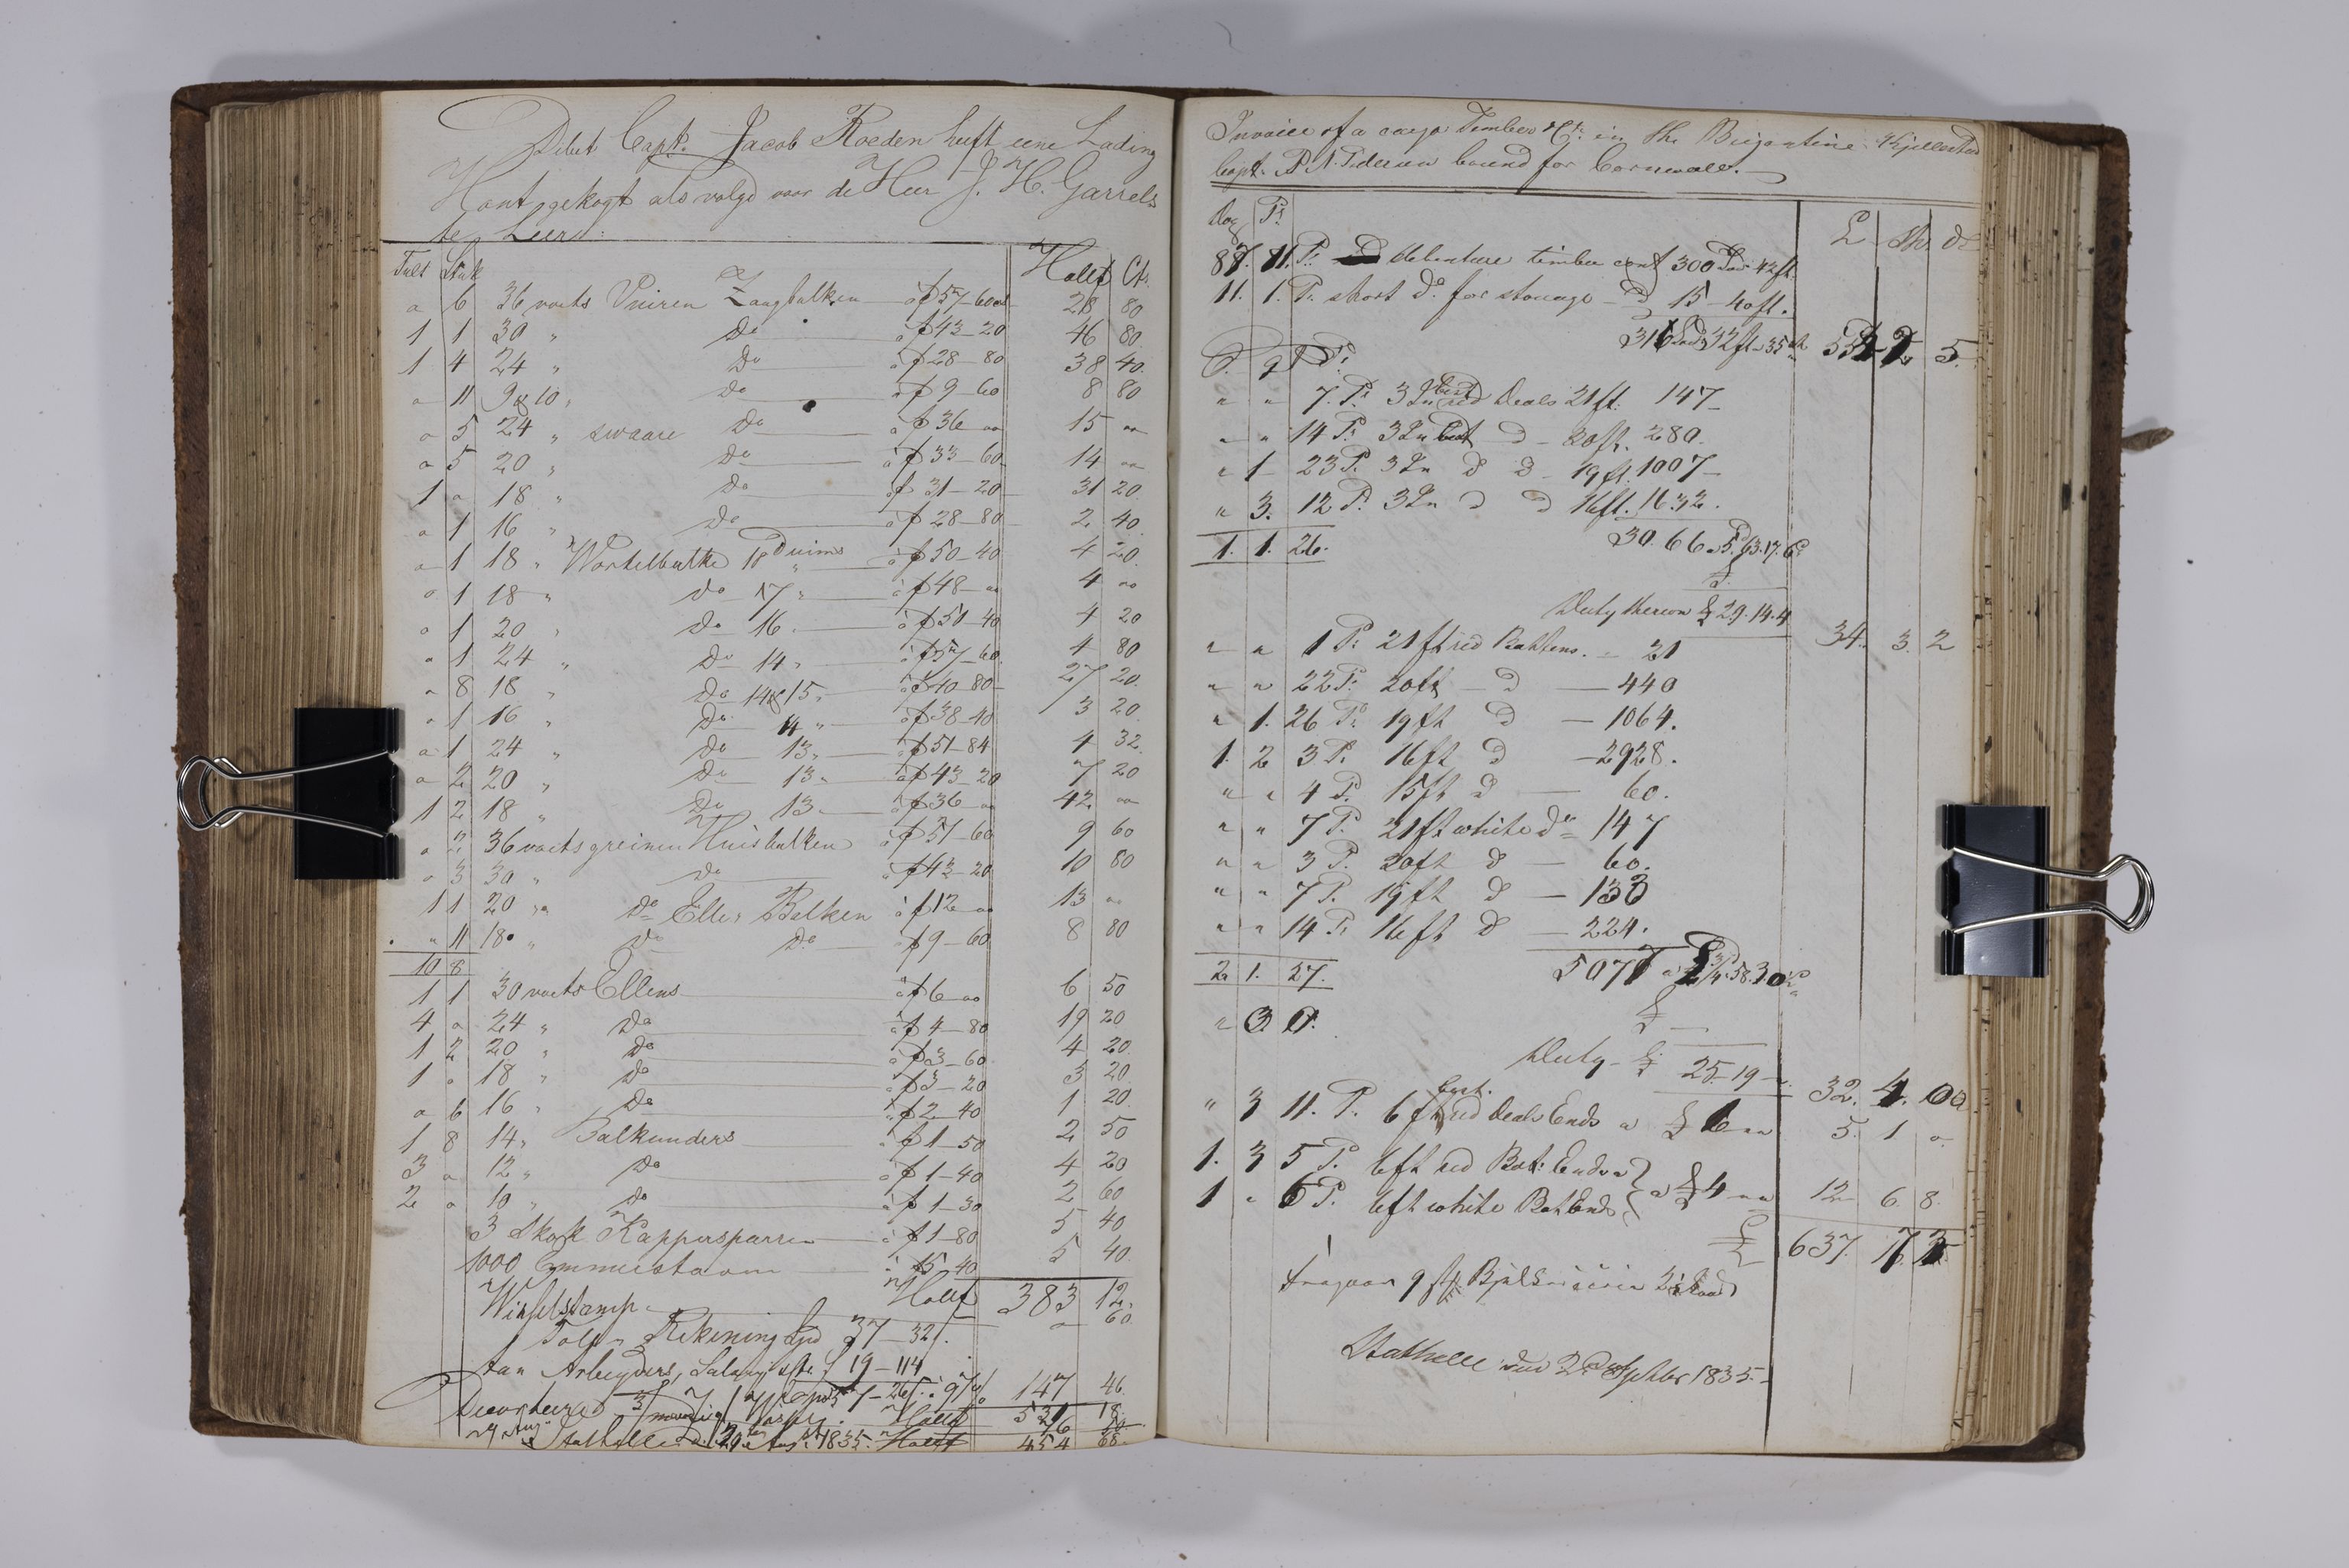 Debet Capt. Jacob Roeden heeft eene Lading
Hout gekogt als volgd voor de Heer J. H. Garrels
te Leer:
Tult Stuk Hollf Ct.
" 6 36 voets Vuiren Zaagbalken à f 57-60 28 80
1 1 30 " Do à f 43-20 46 80
1 4 24 " Do à f 28-80 38 40
" 11 9 & 10 " Do à f 9-60 8 80
" 5 24 " swaare Do à f 36 " 15 "
" 5 20 " Do à f 33-60 14 "
1 " 18 " Do à f 31-20 31 20
" 1 16 " Do à f 28-80 2 40
" 1 18 " Wortelbalke 18 Duims à f 50-40 4 20
" 1 18 " do 17 " à f 48 " 4 "
" 1 20 " Do 16 " à f 50-40 4 20
" 1 24 " Do 14 " à f 57-60 4 80
" 8 18 " Do 14 & 15 " à f 40-80 27 20
" 1 16 " Do 14 " à f 38-40 3 20
" 1 24 " Do 13 " à f 51-84 4 32
" 2 20 " Do 13 " à f 43-20 7 20
1 2 18 " Do 13 " à f 36 " 42 "
" 2 36 voets greinen Huisbalken à f 57-60 9 60
" 3 30 " Do à f 43-20 10 80
1 1 20 " Do Ellen Balken à f 12 " 13 "
" 11 18 " Do Do à f 9-60 8 80
10 8
1 1 30 voets Ellens à f 6 " 6 50
4 " 24 " Do à f 4-80 19 20
1 2 20 " Do à f 3-60 4 20
1 " 18 " Do à f 3-20 3 20
" 6 16 " Do à f 2-40 1 20
1 8 14 " Balkunders à f 1-50 2 50
3 " 12 " Do à f 1-40 4 20
2 " 10 " Do à f 1-30 2 60
3 Skok Kappersparren à f 1-80 5 40
1000 Emmerstaven à f 5-40 5 40
Hollf 383 12
Wissel stamp " 60
Toll Rekening 37-32
147 46
Hollf 531 18
76
Stathelle Aug 1835 Hollf 454 68
Invoice of a cargo Timber &c. in the Brigantine Kjellestad
Capt. P. N. Pedersen bound for Cornwall.
Doz Ps £ Sh. d.
87. 11. Ps debenture timber cont 300 Lds 42 ft.
11. 1. Ps short do for stowage d 15-40 ft.
316 Lds 32 ft a 35 sh 5
C. q Ps
" " 7 Ps 3 In best red Deals 21 ft. 147
" " 14 Ps 3 In best d 20 ft. 280
" 1 23 Ps 3 In d d 19 ft. 1007
" 3. 12 Ps 3 In d d 16 ft. 1632.
1. 1. 26. 3066
Duty thereon £ 29.14.4 34. 3. 2
" " 1 Ps 21 ft red Battens. 21
" " 22 Ps 20 ft d 440
" 1. 26 Ps 19 ft d 1064.
1. 2 3 Ps 16 ft d 2928.
" " 4 Ps 15 ft d 60.
" " 7 Ps 21 ft white do 147
" " 3 Ps 20 ft d 60.
" " 7 Ps 19 ft d 133
" " 14 Ps 16 ft d 224.
2. 1. 27. 5077
Duty £ 25-19 32. 4.
" 3 11. Ps 6 ft best red Deals Ends a £ 6 " 5. 1 "
1. 3 5 Ps 6 ft red Bat: Ends
1 " 6 Ps 6 ft white Bat Ends } a £ 4 " 12 6. 8.
£ 637.
Stathelle den 2d Septbr 1835.